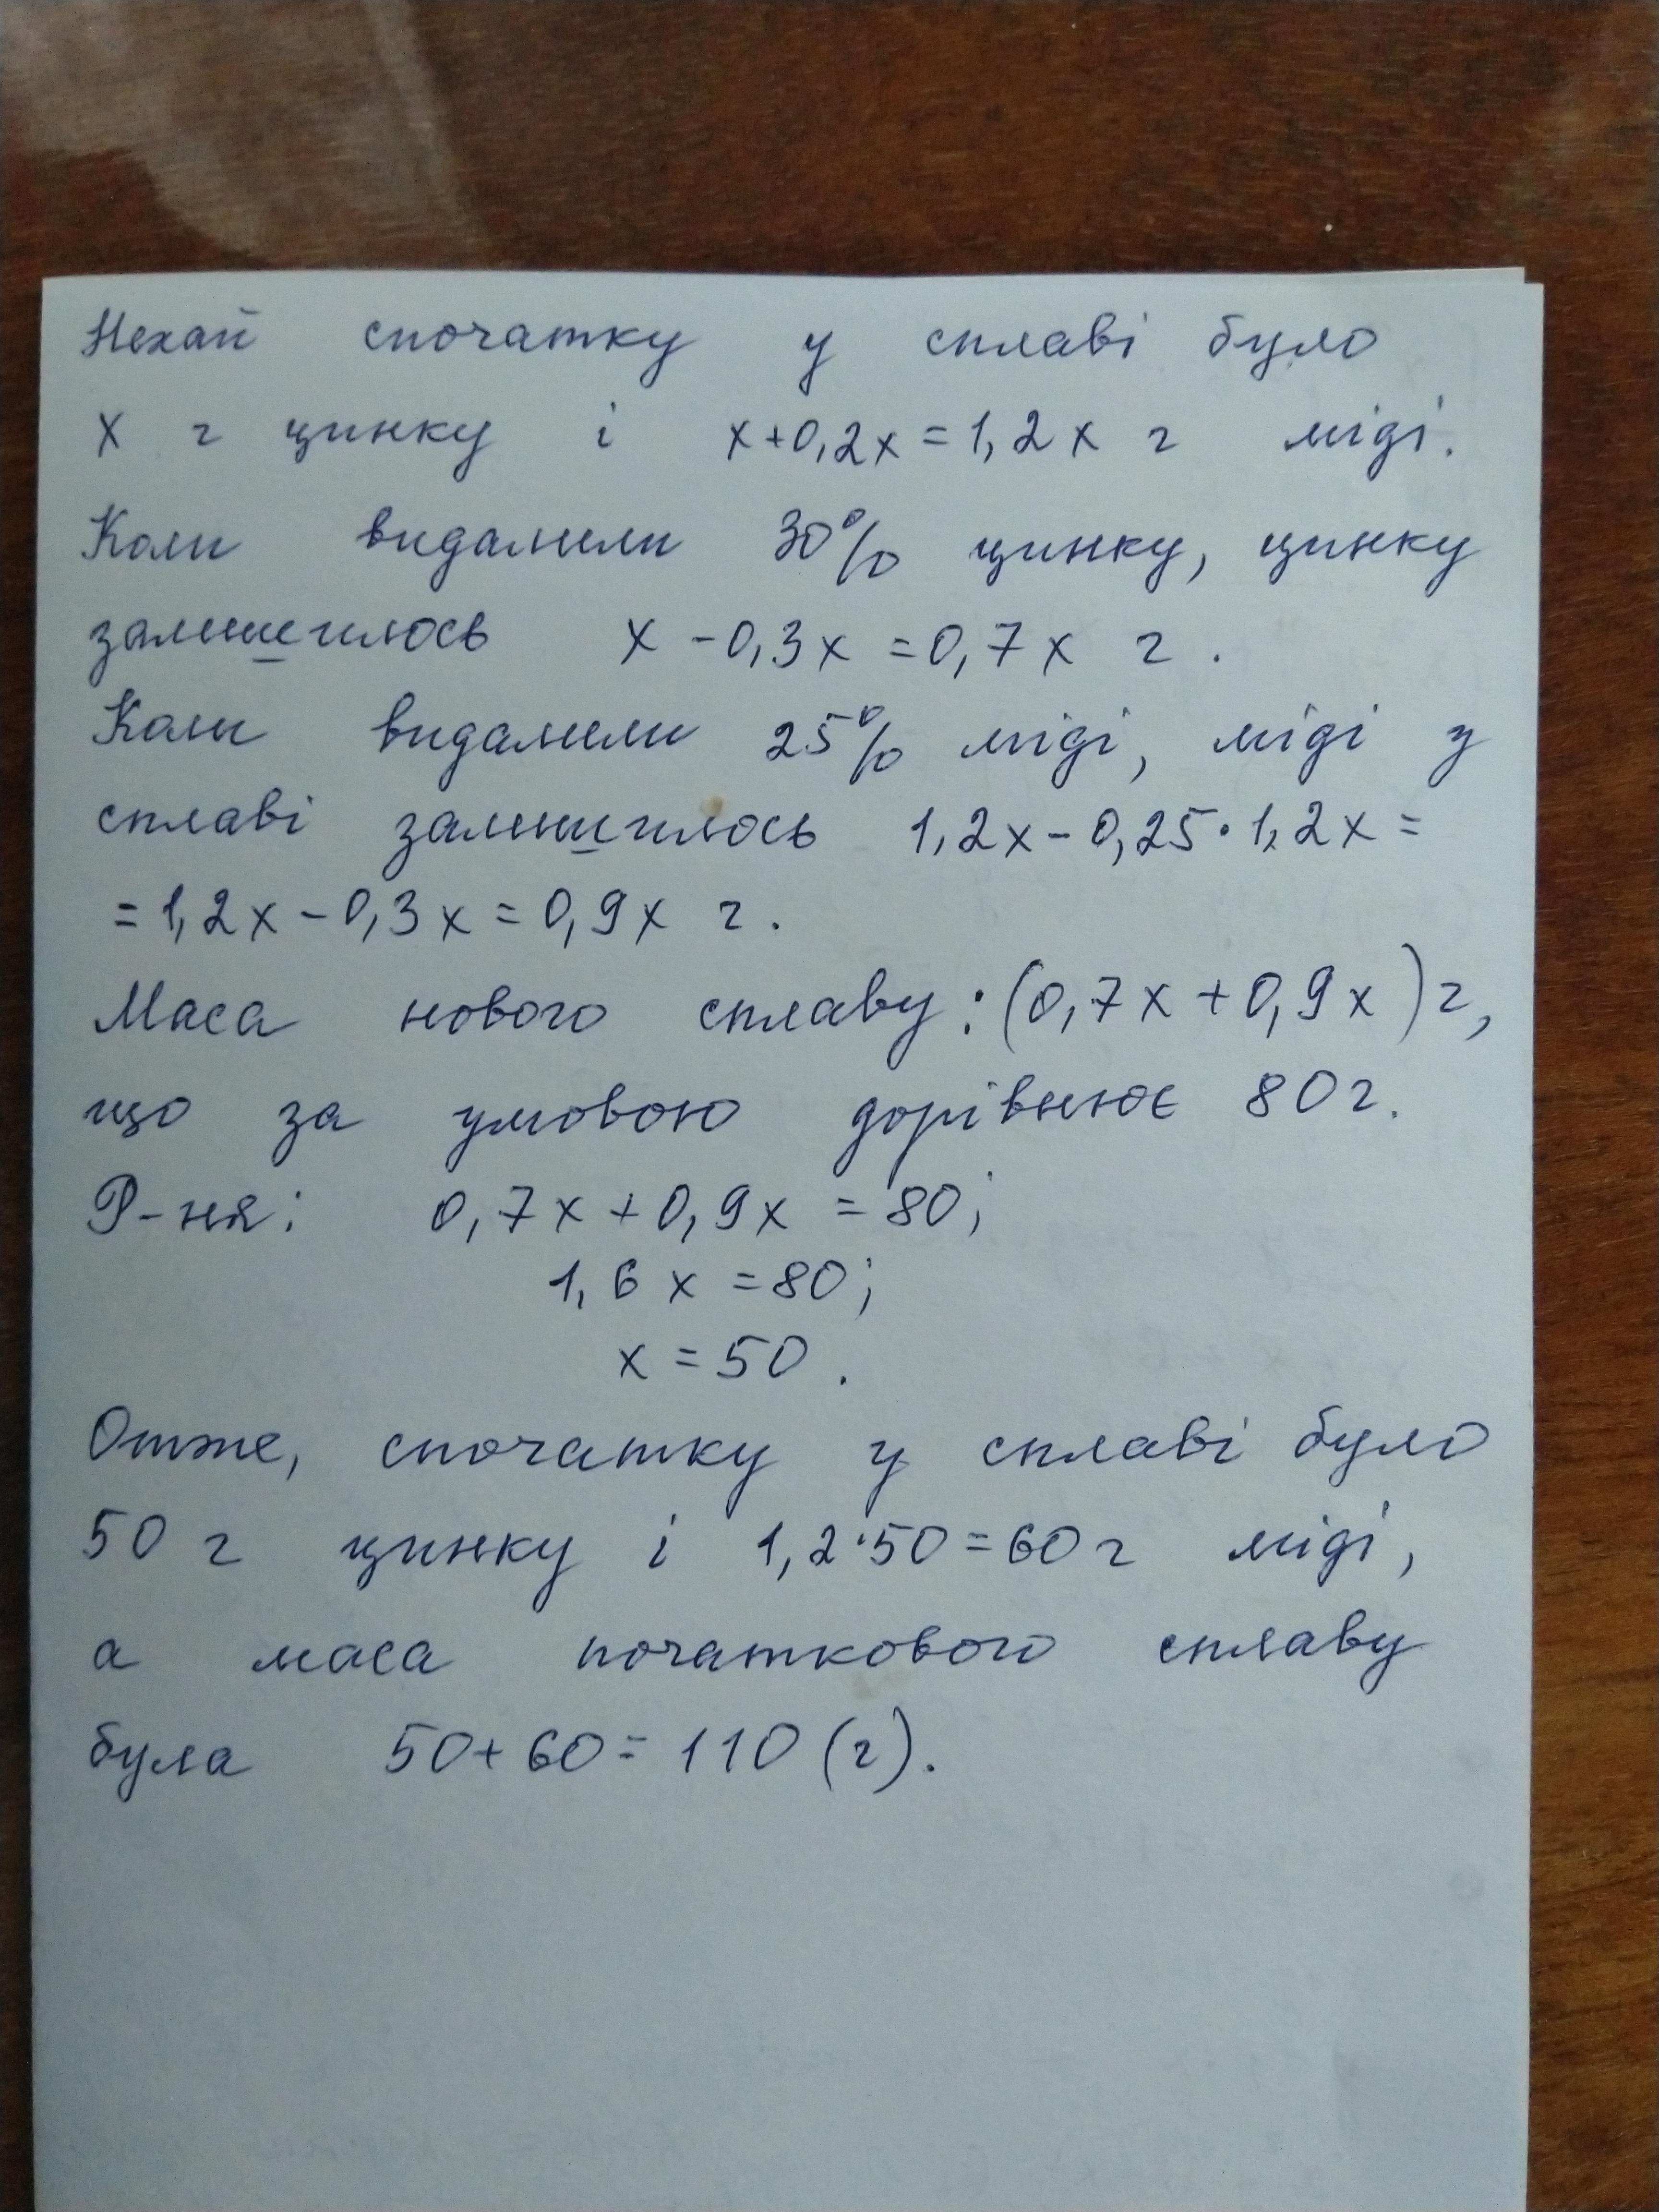 Нехай спочатку у сплаві було
х г цинку і х+0,2х=1,2х г міді.
Коли видалили 30% цинку, цинку
залишилось х-0,3х=0,7х г.
Коли видалили 25% міді, міді у
сплаві залишилось 1,2х-0,25·1,2х=
=1,2х-0,3х=0,9х г.
Маса нового сплаву: (0,7х+0,9х)г,
що за умовою дорівнює 80г.
Р-ня: 0,7х+0,9х=80;
1,6х=80;
х=50.
Отже, спочатку у сплаві було
50 г цинку і 1,2·50=60г міді,
а маса початкового сплаву
була 50+60=110 (г).